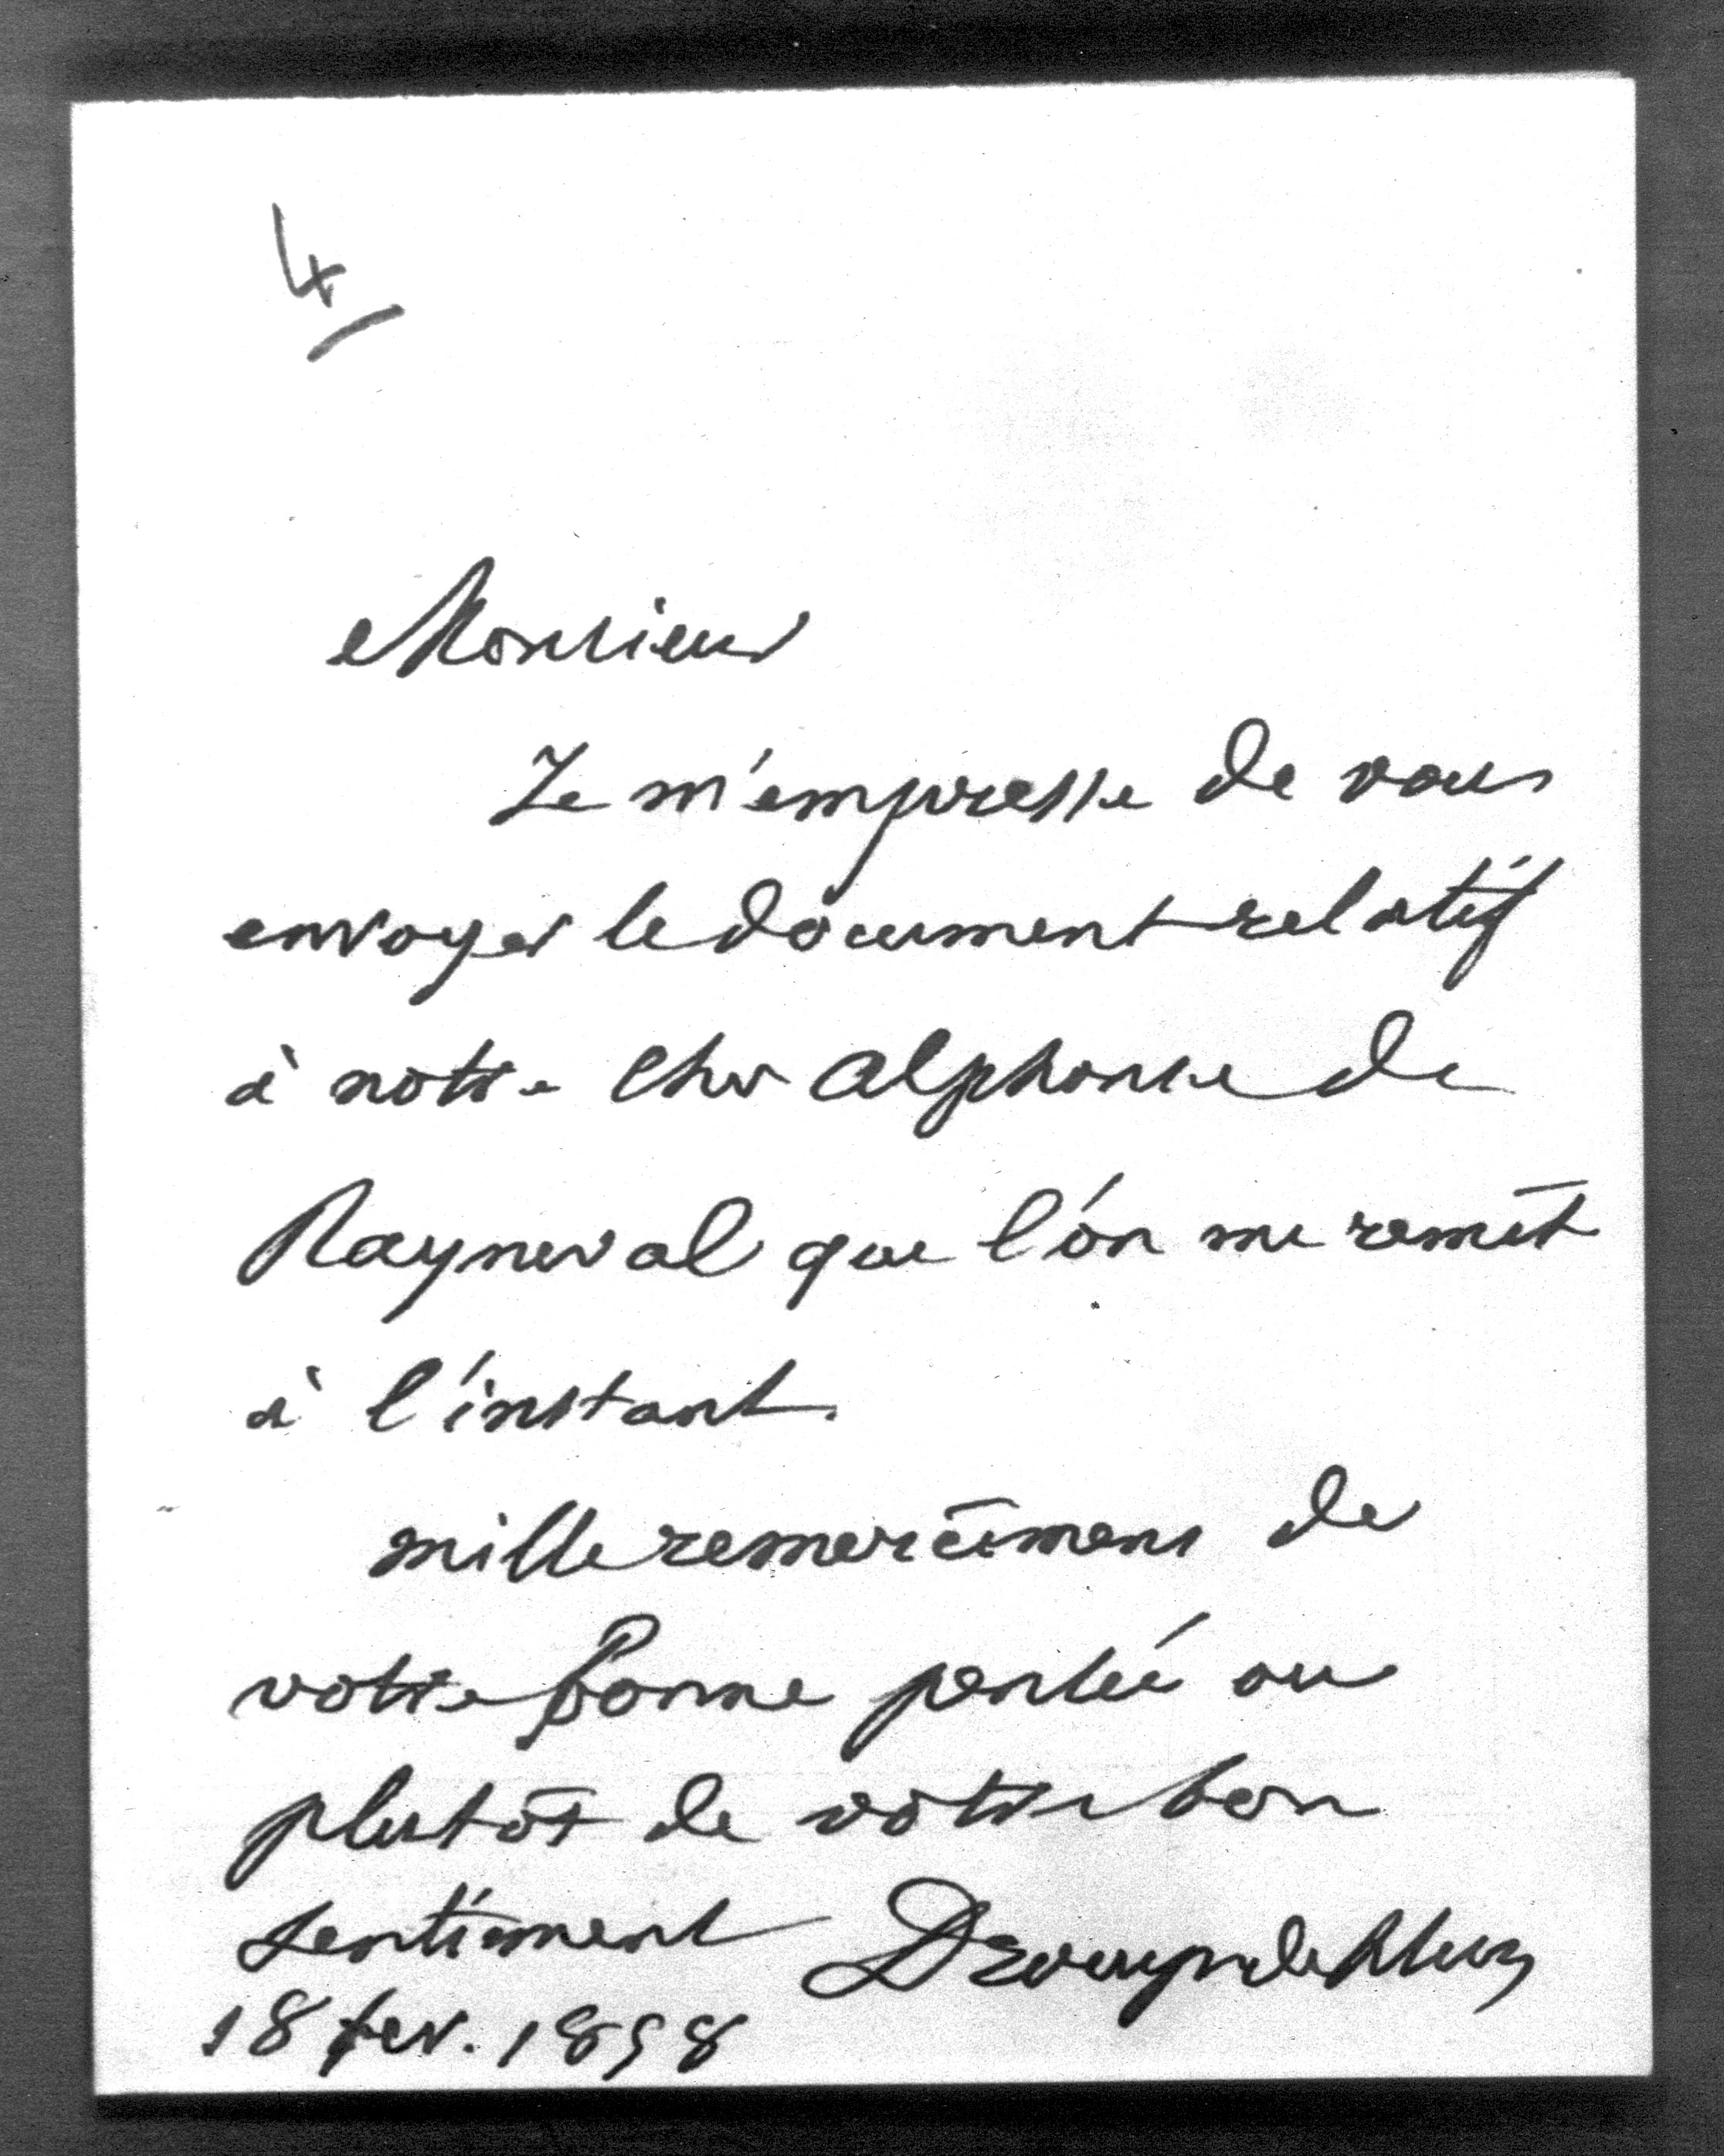 4
Monsieur
Je m'empresse de vous
envoyer le document relatif
à notre cher Alphonse de
Rayneval que l'on me remet
à l'instant.
mille remercîmens de
votre bonne pensée ou
plutôt de votre bon
sentiment Drouyn de Lhuys
18 fev. 1858